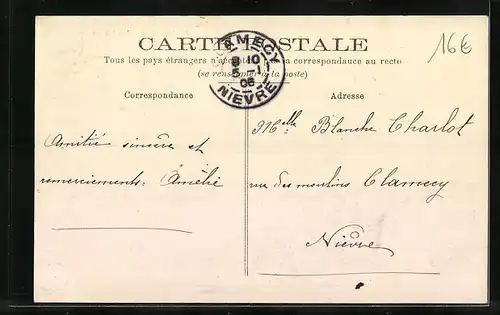 CARTE POSTALE
Tous les pays étrangers n'acceptent pas la correspondance au recto
(se renseigner à la poste)
CLAMECY
10
5 -1
06
NIEVRE
16€
Correspondance
Adresse
Amitié sincère et
remerciements. Amélie
Melle Blanche Charlot
rue des moulins Clamecy
Nièvre